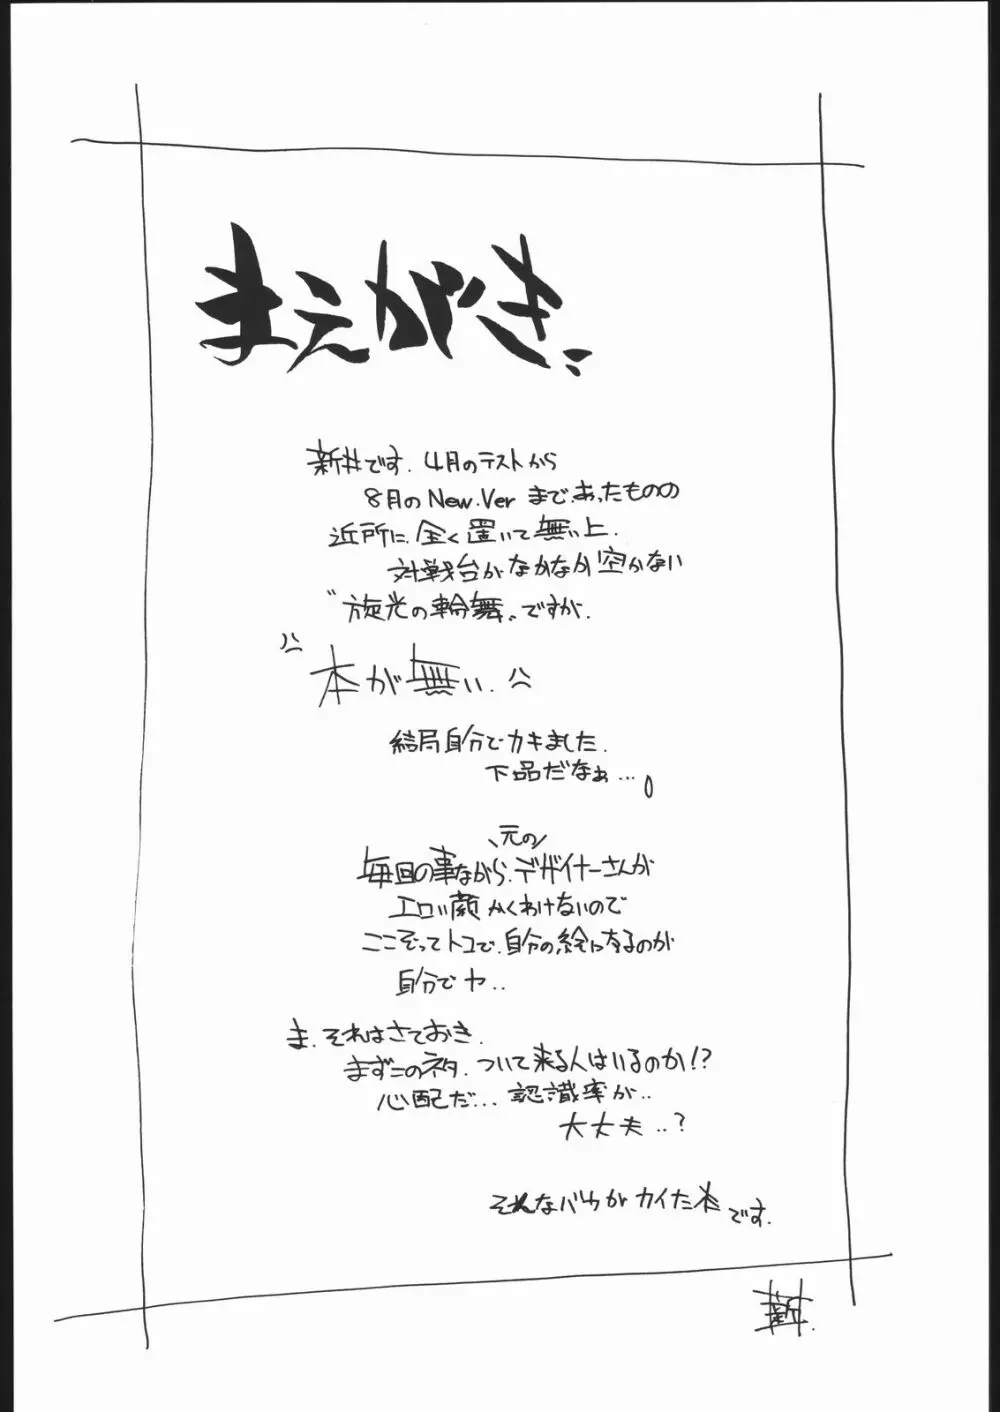 まえがき
新井です. 4月のテストから
8月の New.Ver まであったものの
近所に全く置いて無い上.
対戦台がなかなか空かない
〝旋光の輪舞〟ですが.
本が無い.
結局自分でカキました.
下品だなぁ...
元の
毎回の事ながら.デザイナーさんが
エロい顔かくわけないので
ここぞってトコで.自分の絵になるのが
自分でヤ..
ま.それはさておき.
まずこのネタ.ついて来る人はいるのか!?
心配だ... 認識率が..
大丈夫..?
そんなバカがカイた本です.